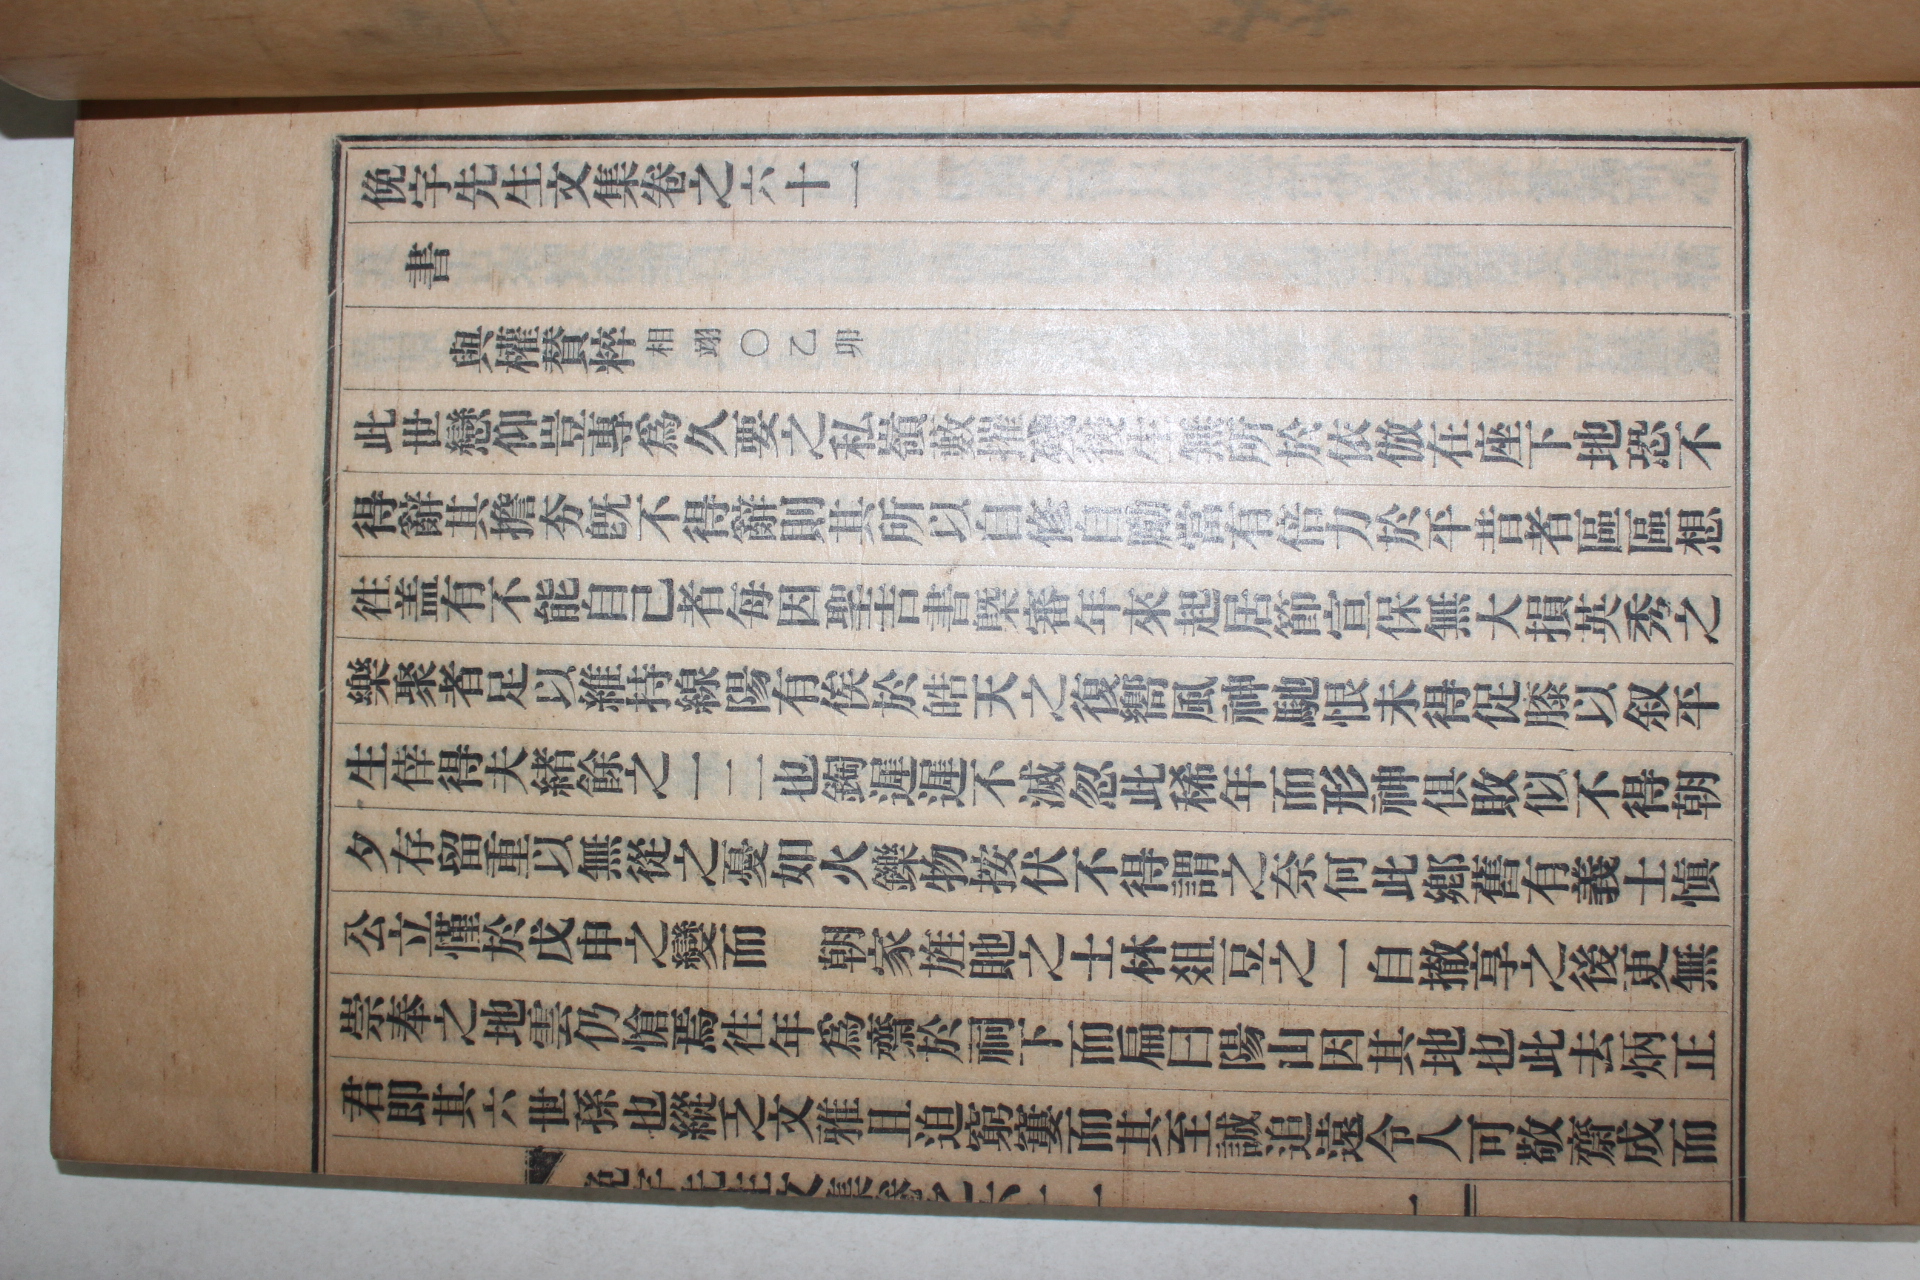 俛宇先生文集卷之六十一
書
與權贊粹相翊○乙卯
此世戀仰豈專爲久要之私嶺藪摧殘後生無所於依倣在座下地恐不
得辭其擔夯旣不得辭則其所以自修自勵當有倍力於平昔者區區想
徃盖有不能自己者每因聖吉書槩審年來起居節宣保無大損英秀之
樂聚者足以維持線陽有俟於皓天之復嚮風神馳恨未得促膝以叙平
生倖得夫緖餘之一二也鋾遲遲不滅忽此稀年而形神俱敗似不得朝
夕存留重以無從之憂如火鑠物按伏不得謂之奈何此鄕舊有義士愼
公立慬於戊申之變而　朝家旌貤之士林俎豆之一自撤享之後更無
崇奉之地雲仍愴焉徃年爲齋於祠下而扁曰陽山因其地也此去炳正
君即其六世孫也縱乏文雅且迫窮窶而其至誠追遠令人可敬齋成而
俛宇先生文集卷之六十一
一